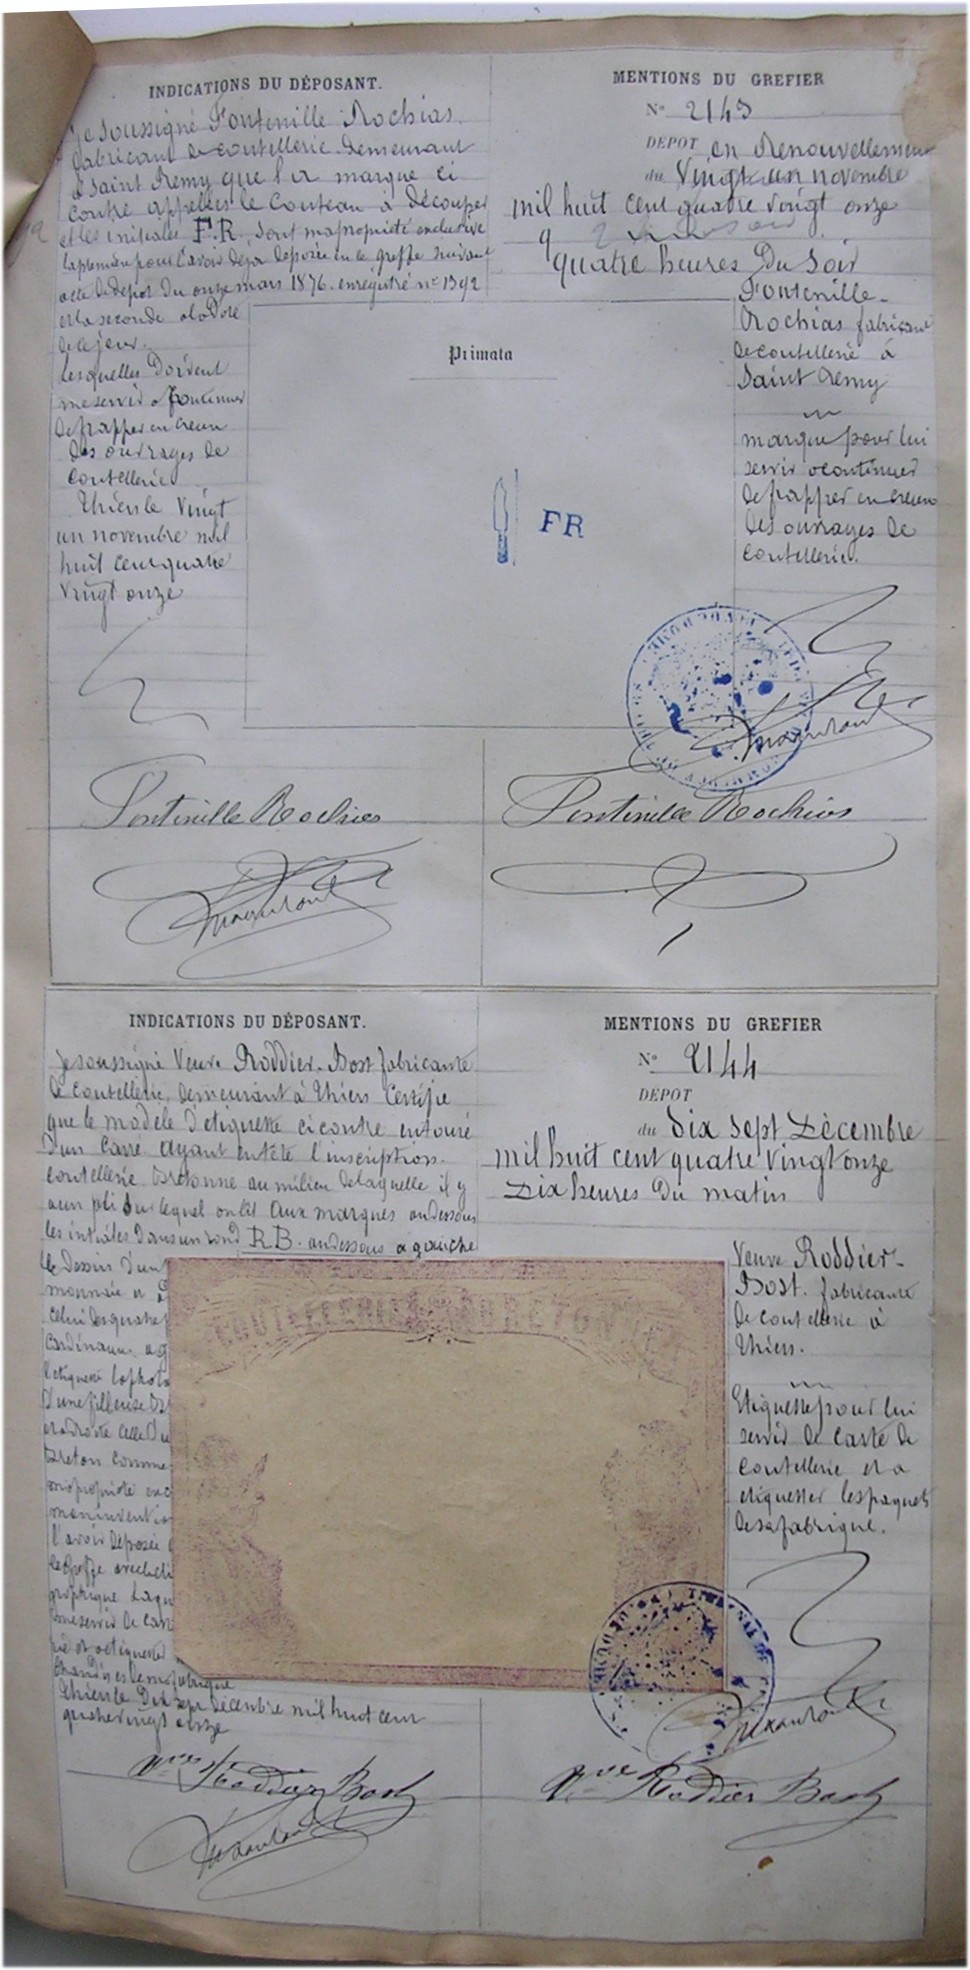 INDICATIONS DU DÉPOSANT.
je soussigné Fontenille Rochias
fabricant de coutellerie demeurant
à Saint Remy que la marque ci
contre appellée le Couteau à découper
et les initiales F.R. sont ma propriété exclusive
la première pour l'avoir déja déposée en le greffe suivant
acte de dépot du onze mars 1876. enregistré n° 1392
et la seconde a
de ce jour.
lesquelles doivent
me servir a continuer
de frapper en creux
des ouvrages de
coutellerie
Thiers le vingt
un novembre mil
huit cent quatre
vingt onze
MENTIONS DU GREFIER
N° 2143
DÉPOT en Renouvellement
du Vingt un novembre
mil huit cent quatre vingt onze
quatre heures du soir
Fontenille-
Rochias fabricant
de coutellerie à
Saint Remy
marque pour lui
servir a continuer
de frapper en creux
des ouvrages de
coutellerie.
Primata
FR
Fontenille Rochias
Fontenille Rochias
INDICATIONS DU DÉPOSANT.
je soussigné Veuve Roddier-Bost fabricante
de coutellerie, demeurant à Thiers Certifie
que le modèle d'étiquette ci contre entouré
d'un carré ayant en tête l'inscription
coutellerie Bretonne au milieu de laquelle il y
a un pli sur lequel on lit aux marques au dessous
les initiales dans un rond R.B. au dessous a gauche
le dessin d'un
monnaie
celui des quatre
Cardinaux
l'étiquette la photo
d'une fileuse
et a droite celle du
Breton comme
ma propriété exc
mon inventio
l'avoir déposée
le Greffe
graphique Laqu
me servir de car
rie et a etiquetter
chandises de ma fabrique
Thiers le Dix sept Décembre mil huit cent
quatre vingt onze
MENTIONS DU GREFIER
N° 2144
DÉPOT
du Dix sept Décembre
mil huit cent quatre vingt onze
Dix heures du matin
Veuve Roddier-
Bost. fabricante
de coutellerie à
Thiers.
Etiquette pour lui
servir de carte de
coutellerie et a
etiquetter les paquets
de sa fabrique.
COUTELLERIE BRETONNE
Vve Roddier Bost
Vve Roddier Bost